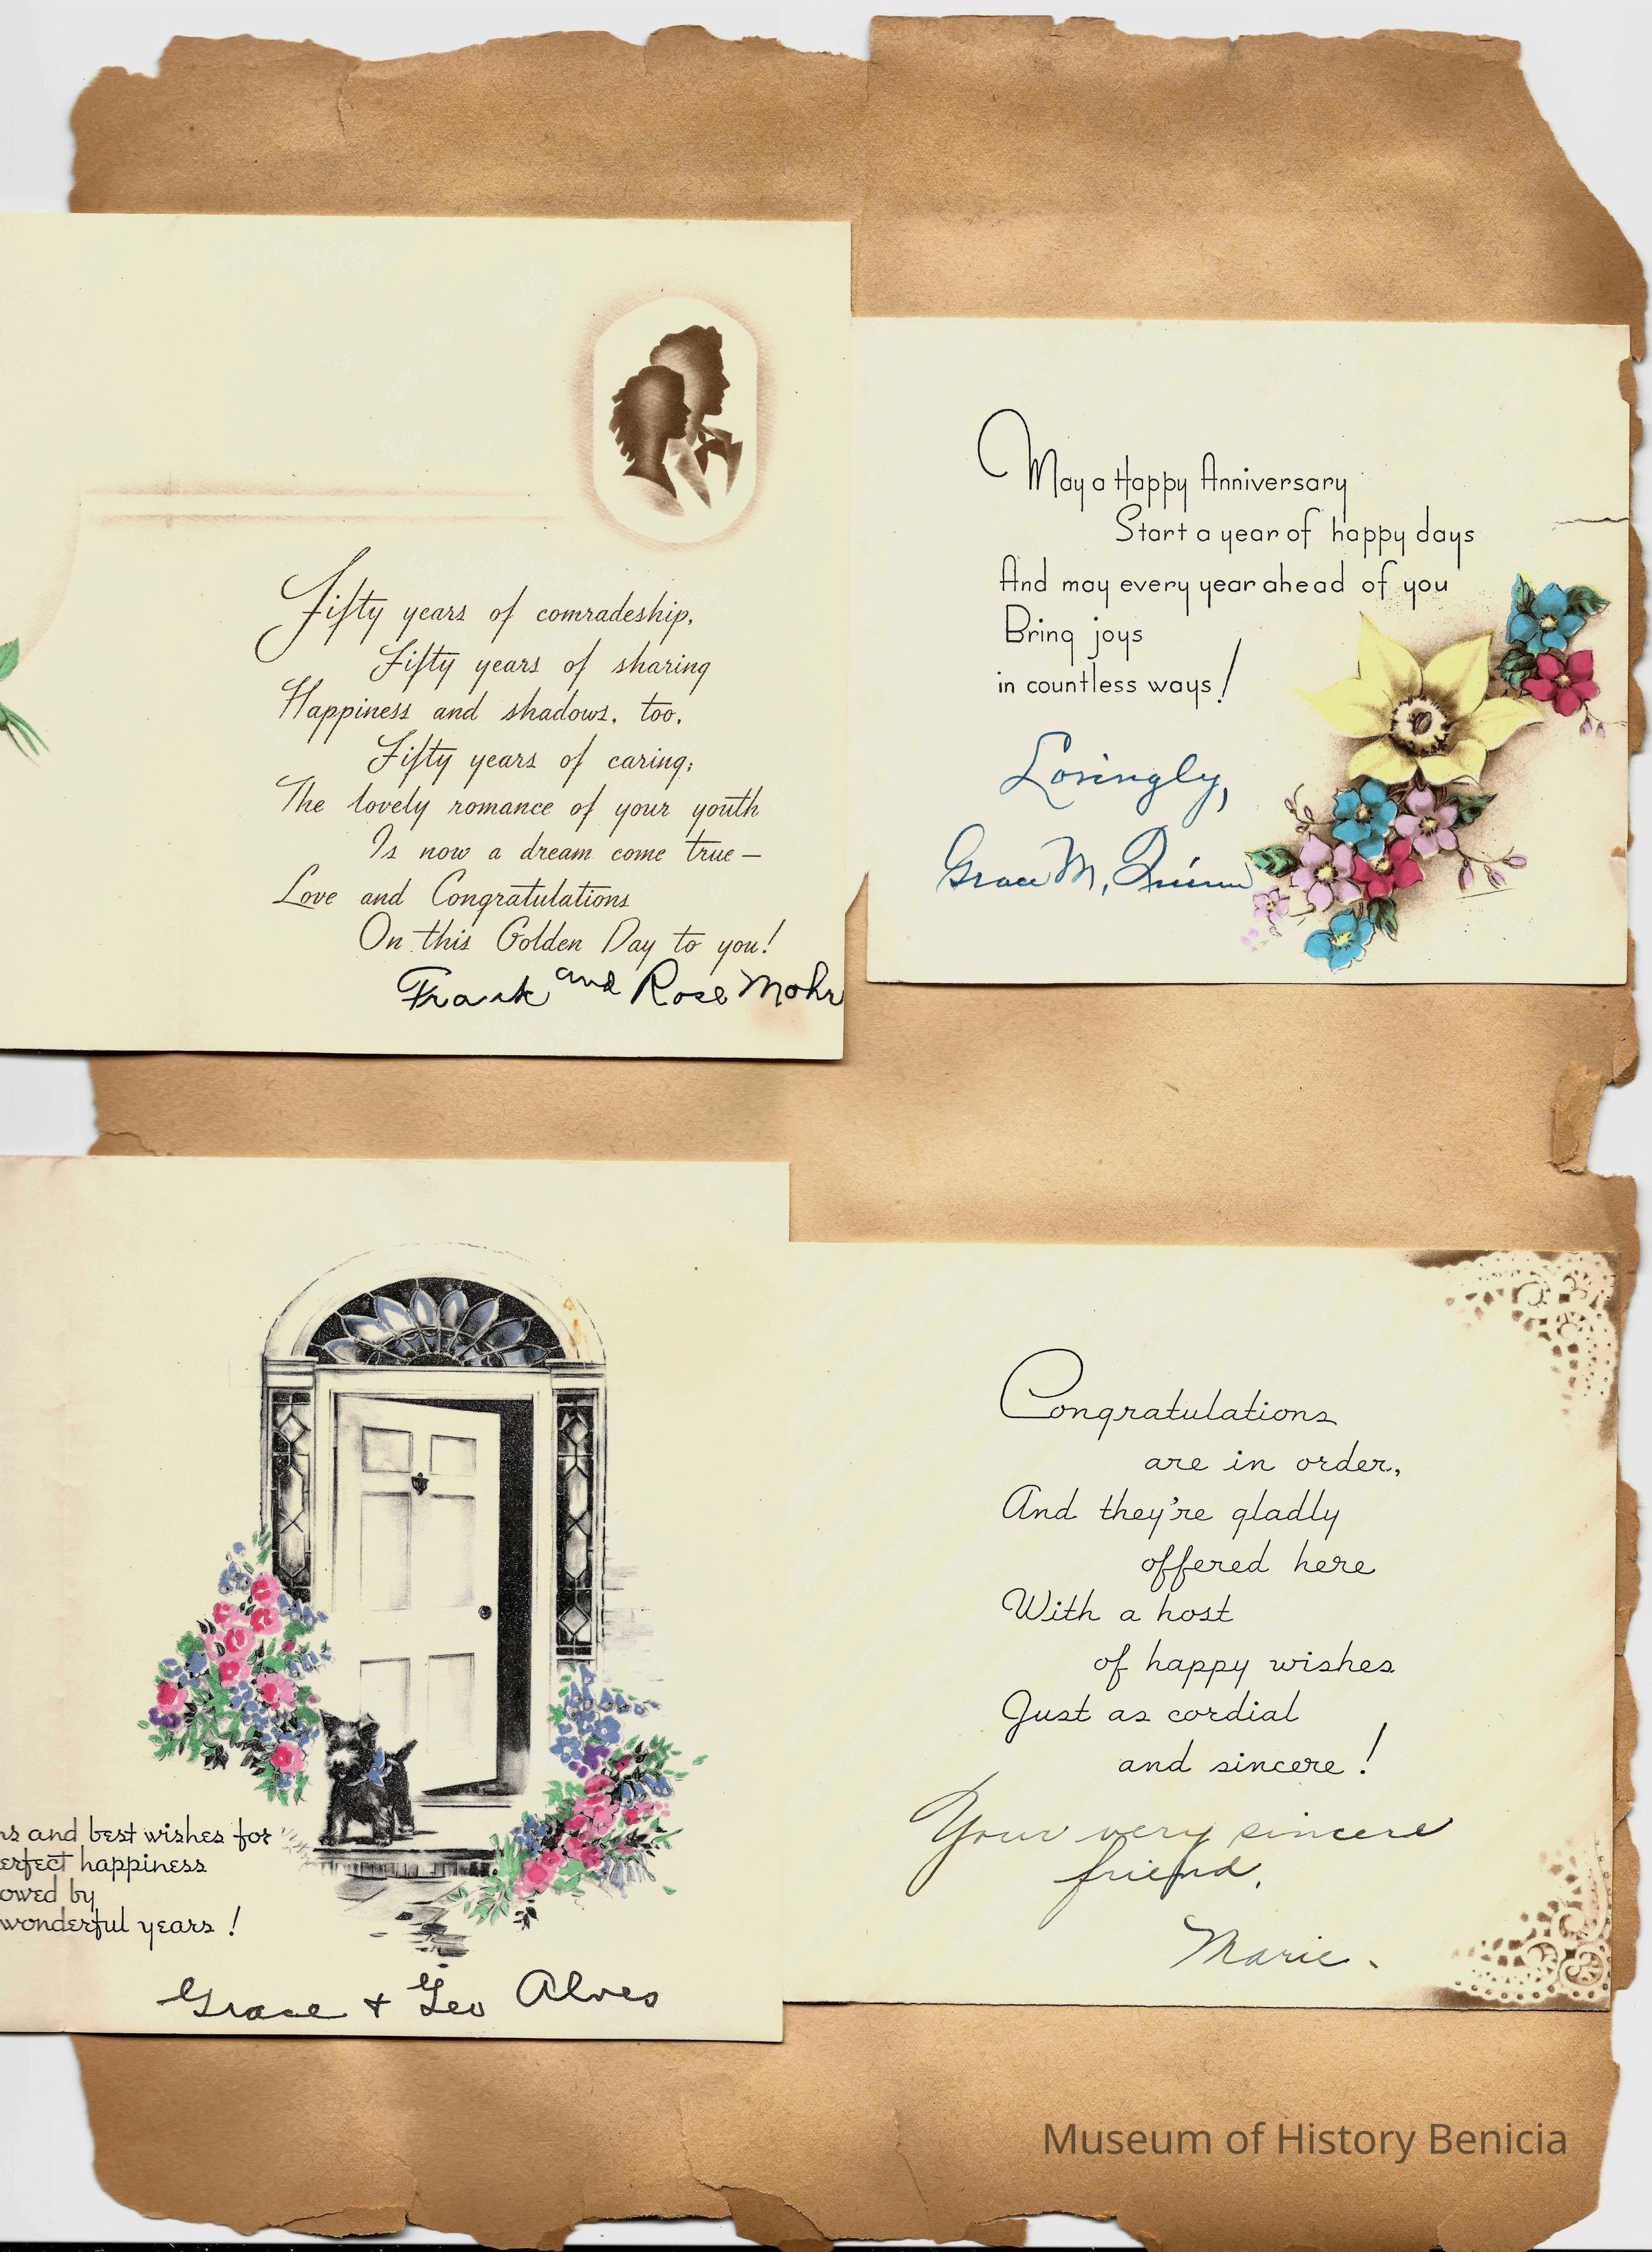 Fifty years of comradeship,
Fifty years of sharing
Happiness and shadows, too,
Fifty years of caring;
The lovely romance of your youth
Is now a dream come true—
Love and Congratulations
On this Golden Day to you!
Frank and Rose Mohr
May a Happy Anniversary
Start a year of happy days
And may every year ahead of you
Bring joys
in countless ways!
Lovingly,
Grace M. Quinn
ns and best wishes for
erfect happiness
owed by
wonderful years!
Grace + Geo Alves
Congratulations
are in order,
And they're gladly
offered here
With a host
of happy wishes
Just as cordial
and sincere!
Your very sincere
friend,
Marie.
Museum of History Benicia